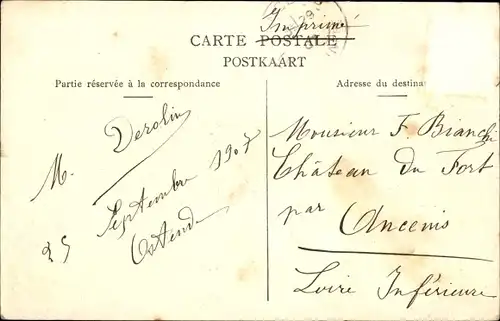 Imprimé
CARTE POSTALE
POSTKAART
Partie réservée à la correspondance
Adresse du destina
M. Derolin
25 Septembre 1907
Ostende
Monsieur F. Bianchi
Château du Fort
par
Ancenis
Loire Inférieure